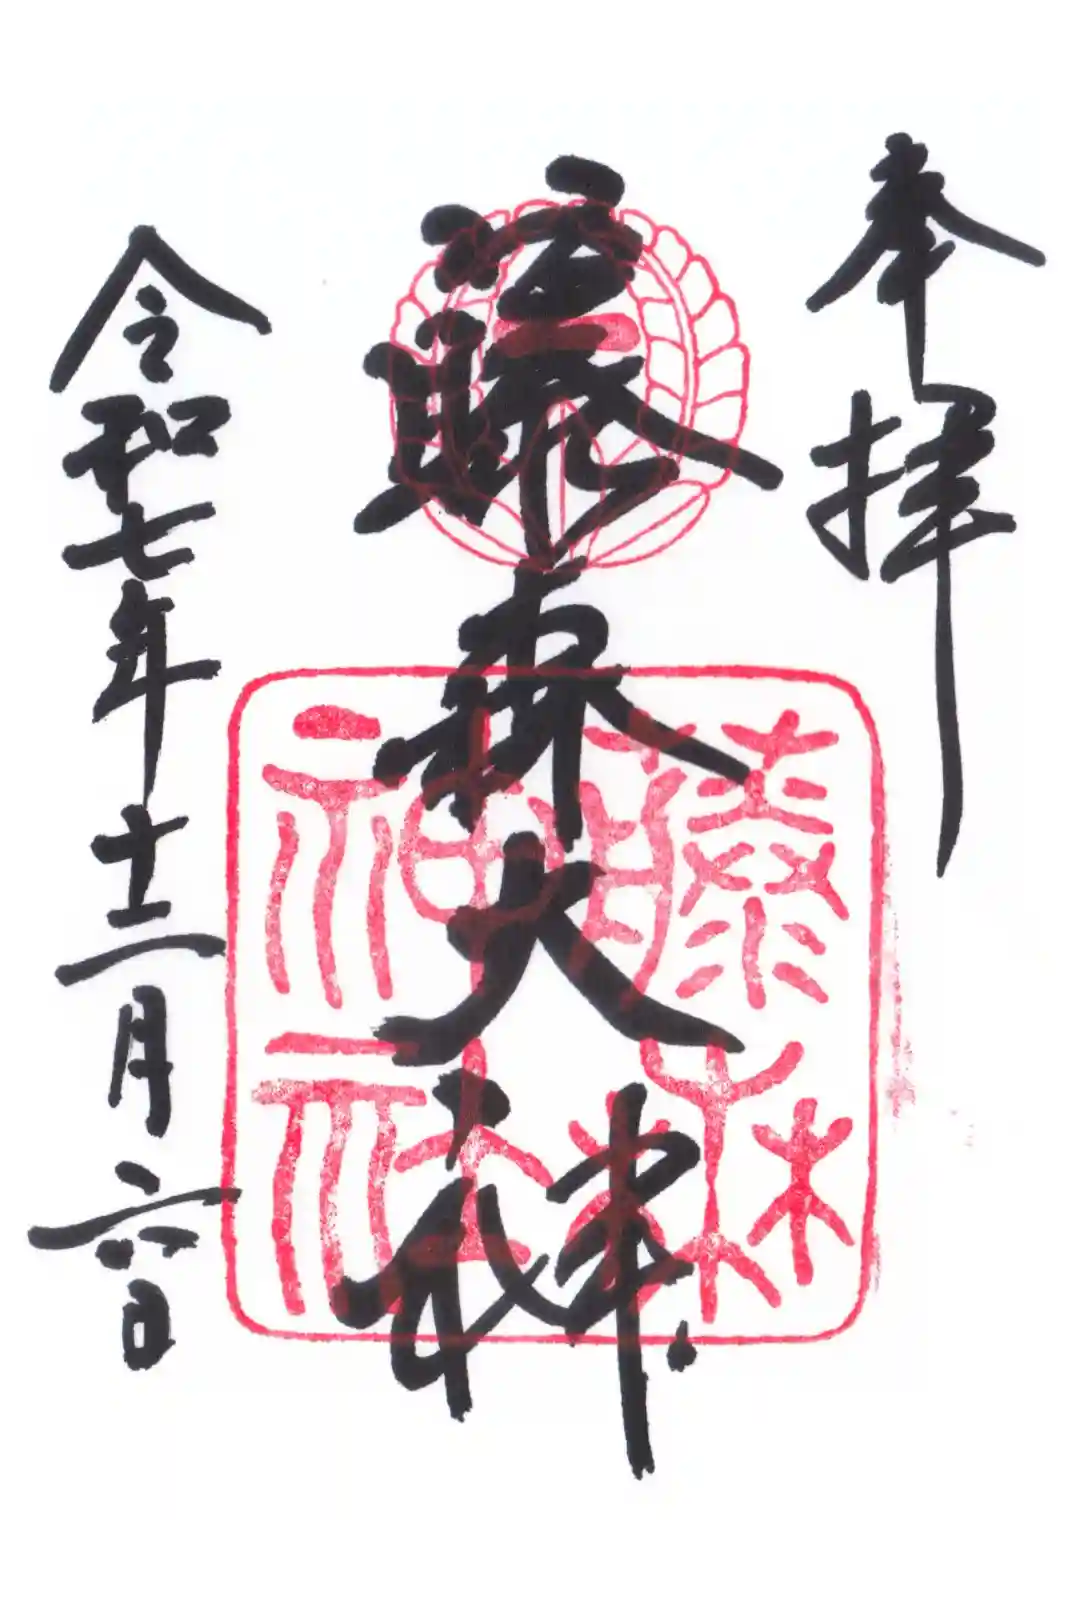 奉拝
藤森大神
藤森神社
令和七年十二月六日